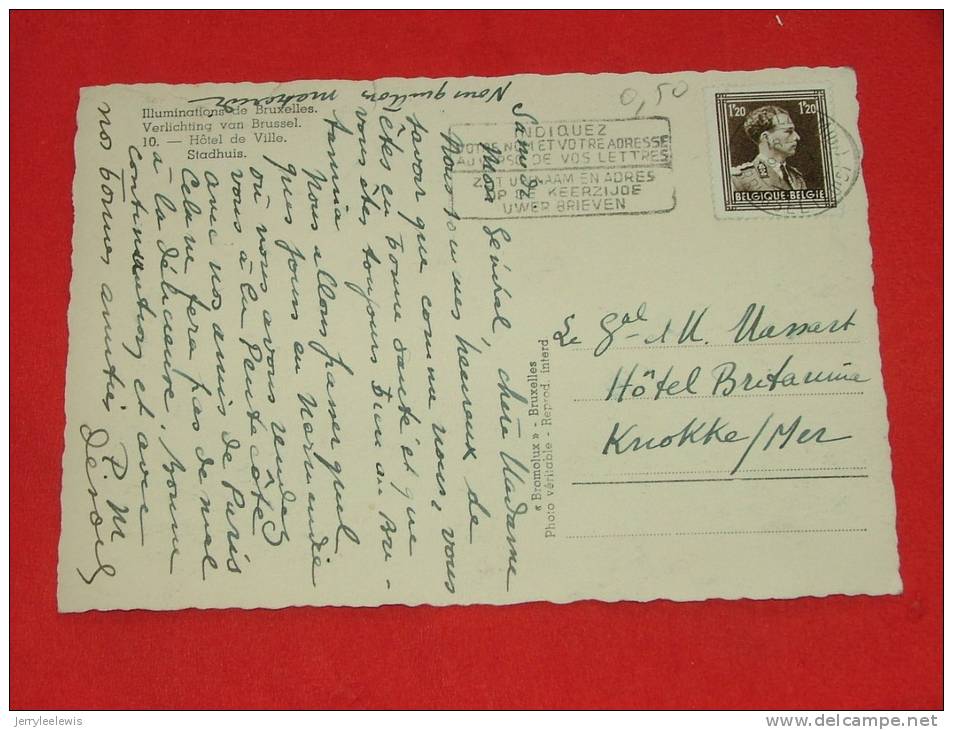 Illuminations de Bruxelles.
Verlichting van Brussel.
10. — Hôtel de Ville.
Stadhuis.
Nous quittons
Samedi
Mon Général, chère Madame
Nous sommes heureux de
savoir que comme nous, vous
êtes en bonne santé et que
vous êtes toujours bien au Bri-
tannia
Nous allons passer quel
ques jours en Normandie
où nous avons rendez
vous à la Pentecôte
avec nos amis de Paris
Cela ne fera pas de mal
à la . Bonne
continuation et avec
nos bonnes amitiés P. M
0,50
INDIQUEZ
VOTRE NOM ET VOTRE ADRESSE
AU VERSO DE VOS LETTRES
ZET UW NAAM EN ADRES
OP DE KEERZIJDE
UWER BRIEVEN
1'20 1'20
BELGIQUE·BELGIE
« Bromolux » - Bruxelles
Photo véritable - Reprod. interd.
Le Gal et M Massart
Hôtel Britannia
Knokke/Mer
jerryleelewis
www.delcampe.net